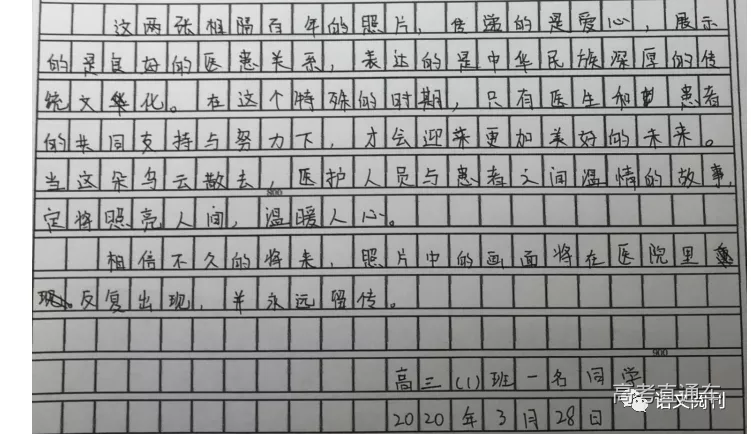 这两张相隔百年的照片，传递的是爱心，展示
的是良好的医患关系，表达的是中华民族深厚的传
统文化。在这个特殊的时期，只有医生和患者
的共同支持与努力下，才会迎来更加美好的未来。
当这朵乌云散去，医护人员与患者之间温情的故事，
800
定将照亮人间，温暖人心。
相信不久的将来，照片中的画面将在医院里
反复出现，并永远留传。
900
高三（1）班一名同学
高考直通车
语文阅刊
2020年3月28日